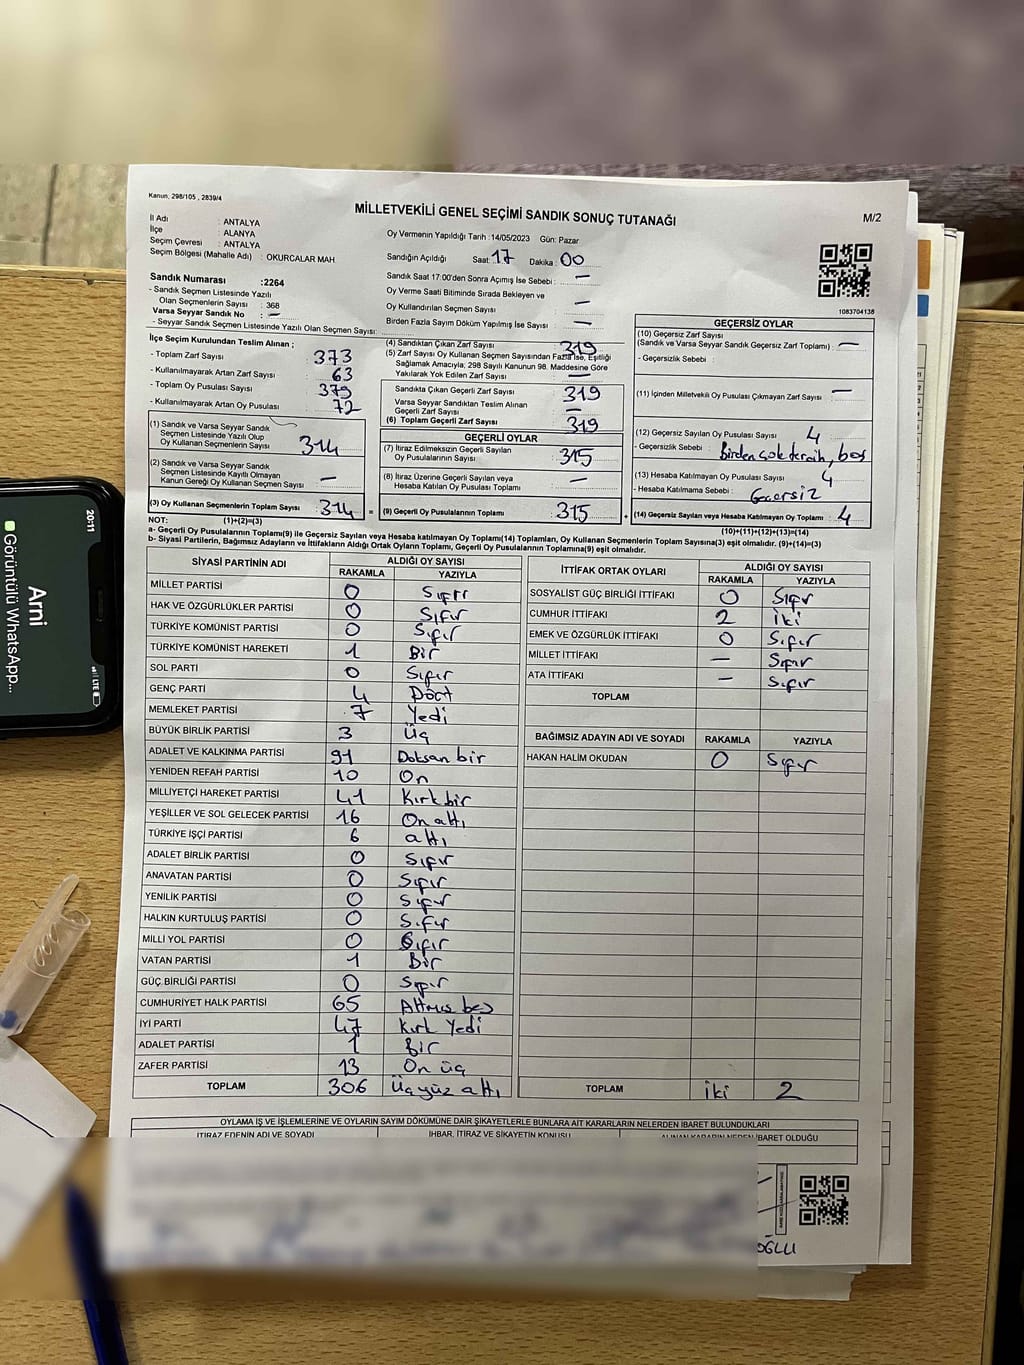 Kanun, 298/105 , 2839/4
MİLLETVEKİLİ GENEL SEÇİMİ SANDIK SONUÇ TUTANAĞI
M/2
İl Adı : ANTALYA
İlçe : ALANYA
Seçim Çevresi : ANTALYA
Seçim Bölgesi (Mahalle Adı) : OKURCALAR MAH
Oy Vermenin Yapıldığı Tarih :14/05/2023 Gün: Pazar
Sandığın Açıldığı Saat: 17 Dakika: 00
Sandık Saat 17:00'den Sonra Açımış İse Sebebi : —
Oy Verme Saati Bitiminde Sırada Bekleyen ve
Oy Kullandırılan Seçmen Sayısı —
Birden Fazla Sayım Döküm Yapılmış İse Sayısı —
1083704138
Sandık Numarası :2264
- Sandık Seçmen Listesinde Yazılı
Olan Seçmenlerin Sayısı : 368
Varsa Seyyar Sandık No : —
- Seyyar Sandık Seçmen Listesinde Yazılı Olan Seçmen Sayısı:
İlçe Seçim Kurulundan Teslim Alınan ;
- Toplam Zarf Sayısı 373
- Kullanılmayarak Artan Zarf Sayısı 63
- Toplam Oy Pusulası Sayısı 379
- Kullanılmayarak Artan Oy Pusulası 72
(1) Sandık ve Varsa Seyyar Sandık
Seçmen Listesinde Yazılı Olup
Oy Kullanan Seçmenlerin Sayısı 314
(2) Sandık ve Varsa Seyyar Sandık
Seçmen Listesinde Kayıtlı Olmayan
Kanun Gereği Oy Kullanan Seçmen Sayısı —
(3) Oy Kullanan Seçmenlerin Toplam Sayısı 314 =
(4) Sandıktan Çıkan Zarf Sayısı 319
(5) Zarf Sayısı Oy Kullanan Seçmen Sayısından Fazla İse, Eşitliği
Sağlamak Amacıyla; 298 Sayılı Kanunun 98. Maddesine Göre
Yakılarak Yok Edilen Zarf Sayısı —
Sandıkta Çıkan Geçerli Zarf Sayısı 319
Varsa Seyyar Sandıktan Teslim Alınan
Geçerli Zarf Sayısı —
(6) Toplam Geçerli Zarf Sayısı 319
GEÇERLİ OYLAR
(7) İtiraz Edilmeksizin Geçerli Sayılan
Oy Pusulalarının Sayısı 315
(8) İtiraz Üzerine Geçerli Sayılan veya
Hesaba Katılan Oy Pusulası Toplamı —
(9) Geçerli Oy Pusulalarının Toplamı 315 +
GEÇERSİZ OYLAR
(10) Geçersiz Zarf Sayısı
(Sandık ve Varsa Seyyar Sandık Geçersiz Zarf Toplamı) : —
- Geçersizlik Sebebi :
(11) İçinden Milletvekili Oy Pusulası Çıkmayan Zarf Sayısı : —
(12) Geçersiz Sayılan Oy Pusulası Sayısı : 4
- Geçersizlik Sebebi : Birden çok tercih, boş
(13) Hesaba Katılmayan Oy Pusulası Sayısı : 4
- Hesaba Katılmama Sebebi : Geçersiz
(14) Geçersiz Sayılan veya Hesaba Katılmayan Oy Toplamı : 4
NOT: (1)+(2)=(3)
(10)+(11)+(12)+(13)=(14)
a- Geçerli Oy Pusulalarının Toplamı(9) ile Geçersiz Sayılan veya Hesaba Katılmayan Oy Toplamı(14) Toplamları, Oy Kullanan Seçmenlerin Toplam Sayısına(3) eşit olmalıdır. (9)+(14)=(3)
b- Siyasi Partilerin, Bağımsız Adayların ve İttifakların Aldığı Ortak Oyların Toplamı, Geçerli Oy Pusulalarının Toplamına(9) eşit olmalıdır.
SİYASİ PARTİNİN ADI ALDIĞI OY SAYISI
RAKAMLA YAZIYLA
MİLLET PARTİSİ 0 Sıfır
HAK VE ÖZGÜRLÜKLER PARTİSİ 0 Sıfır
TÜRKİYE KOMÜNİST PARTİSİ 0 Sıfır
TÜRKİYE KOMÜNİST HAREKETİ 1 Bir
SOL PARTİ 0 Sıfır
GENÇ PARTİ 4 Dört
MEMLEKET PARTİSİ 7 Yedi
BÜYÜK BİRLİK PARTİSİ 3 Üç
ADALET VE KALKINMA PARTİSİ 91 Doksan bir
YENİDEN REFAH PARTİSİ 10 On
MİLLİYETÇİ HAREKET PARTİSİ 41 Kırk bir
YEŞİLLER VE SOL GELECEK PARTİSİ 16 On altı
TÜRKİYE İŞÇİ PARTİSİ 6 altı
ADALET BİRLİK PARTİSİ 0 Sıfır
ANAVATAN PARTİSİ 0 Sıfır
YENİLİK PARTİSİ 0 Sıfır
HALKIN KURTULUŞ PARTİSİ 0 Sıfır
MİLLİ YOL PARTİSİ 0 Sıfır
VATAN PARTİSİ 1 Bir
GÜÇ BİRLİĞİ PARTİSİ 0 Sıfır
CUMHURİYET HALK PARTİSİ 65 Altmış beş
İYİ PARTİ 47 Kırk Yedi
ADALET PARTİSİ 1 Bir
ZAFER PARTİSİ 13 On üç
TOPLAM 306 Üçyüz altı
İTTİFAK ORTAK OYLARI ALDIĞI OY SAYISI
RAKAMLA YAZIYLA
SOSYALİST GÜÇ BİRLİĞİ İTTİFAKI 0 Sıfır
CUMHUR İTTİFAKI 2 iki
EMEK VE ÖZGÜRLÜK İTTİFAKI 0 Sıfır
MİLLET İTTİFAKI — Sıfır
ATA İTTİFAKI — Sıfır
TOPLAM
BAĞIMSIZ ADAYIN ADI VE SOYADI RAKAMLA YAZIYLA
HAKAN HALİM OKUDAN 0 Sıfır
TOPLAM iki 2
OYLAMA İŞ VE İŞLEMLERİNE VE OYLARIN SAYIM DÖKÜMÜNE DAİR ŞİKAYETLERLE BUNLARA AİT KARARLARIN NELERDEN İBARET BULUNDUKLARI
İTİRAZ EDENİN ADI VE SOYADI İHBAR, İTİRAZ VE ŞİKAYETİN KONUSU ALINAN KARARIN NEDEN İBARET OLDUĞU
OĞLU
20:11
LTE
Arni
Görüntülü WhatsApp...